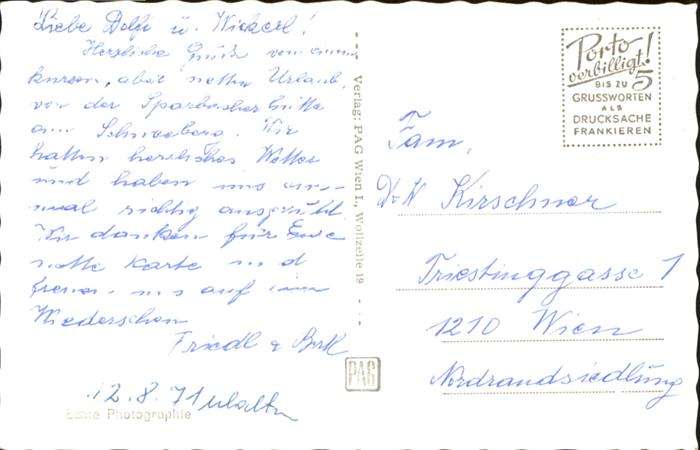 Liebe Dolfi u. Wickerl!
Herzliche Grüße von einem
kurzen, aber netten Urlaub,
von der Sparbacher Hütte
am Schneeberg. Wir
hatten herrliches Wetter
und haben uns ein-
mal richtig ausgeruht.
Wir danken für Eure
nette Karte und
freuen uns auf ein
Wiedersehen
Friedl &
12.8.71 erhalten
Echte Photographie
Verlag: PAG Wien I., Wollzeile 19
PAG
Porto
verbilligt!
BIS ZU 5
GRUSSWORTEN
ALS
DRUCKSACHE
FRANKIEREN
Fam.
Kirschner
Triestinggasse 1
1210 Wien
Nordrandsiedlung